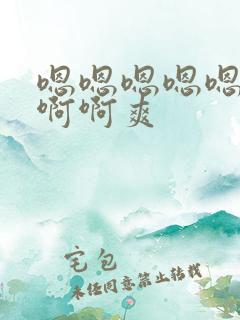 嗯嗯嗯嗯嗯
啊啊爽
宅包
未经同意禁止转载